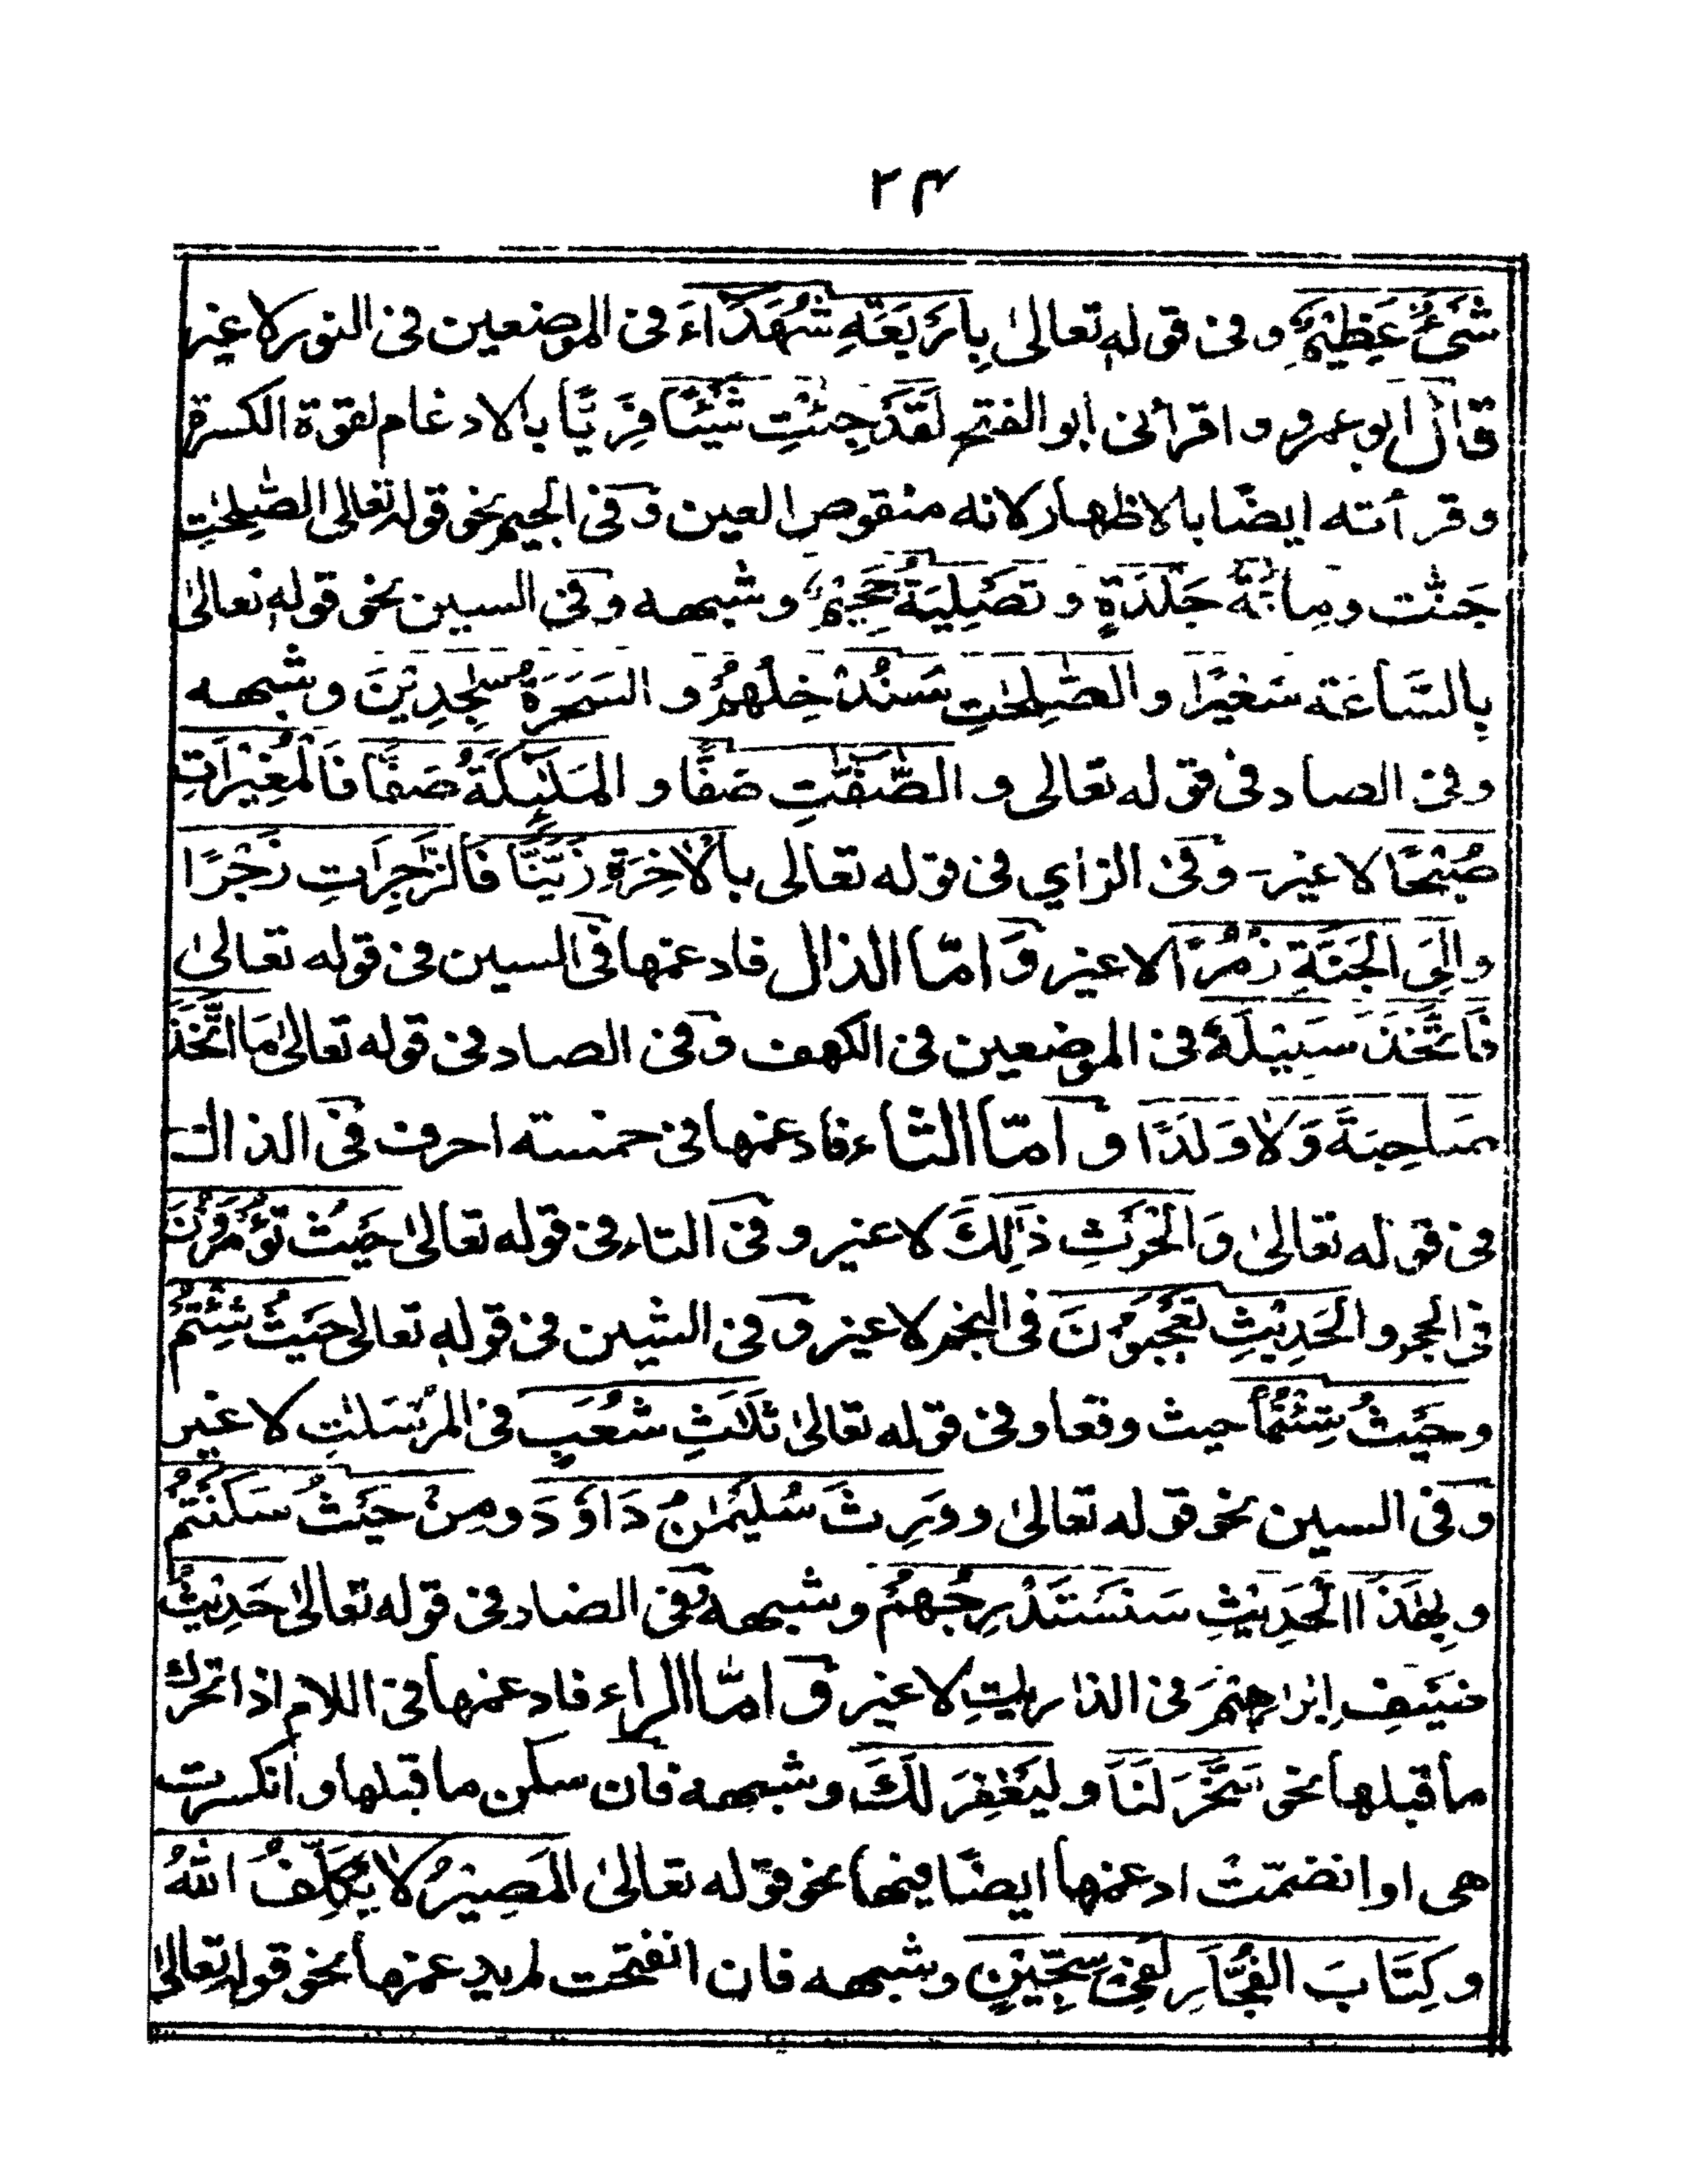 ٢٤
شَیْءٌ عَظِیْمٌ و فی قوله تعالیٰ بِاَرْبَعَةِ شُهَدَاءَ فی الموضعین فی النور لا غیر
قال ابو عمرو و اقرأنی ابو الفتح لَقَدْ جِئْتِ شَیْئًا فَرِیًّا بالادغام لقوة الکسرة
وقرأته ایضًا بالاظهار لانه منقوص العین وَفی الجیم نحو قوله تعالی الصّٰلِحٰتِ
جَنّٰت و مِائَةَ جَلْدَةٍ و تَصْلِیَةُ جَحِیْمٍ و شبهه وَفی السین نحو قوله تعالیٰ
بِالسَّاعَة سَعِیْرًا و الصّٰلِحٰتِ سَنُدْخِلُهُمْ و السَحَرَةُ سٰجِدِیْنَ و شبهه
وفی الصاد فی قوله تعالی و الصّٰفّٰتِ صَفًّا و المَلٰٓئِکَةُ صَفًّا فَالْمُغِیْرَاتِ
صُبْحًا لا غیر۔ وَفی الزاي فی قوله تعالی بالْاٰخِرَةِ زَیَّنَّا فَالزَّاجِرَاتِ زَجْرًا
و اِلَی الْجَنَّةِ زُمَرًا لا غیر وَ امّا الذال فادغمها فی السین فی قوله تعالیٰ
فَاتَّخَذَ سَبِیْلَهٗ فی الموضعین فی الکهف وَفی الصاد فی قوله تعالیٰ مَا اتَّخَذَ
صَاحِبَةً وَّلَا وَلَدًا و امّا الثاء فادغمها فی خمسة احرف فی الذال
فی قوله تعالیٰ وَالْحَرْثِ ذٰلِكَ لا غیر و فی التاء فی قوله تعالیٰ حَیْثُ تُؤْمَرُوْنَ
فی الحجر و الْحَدِیْثِ تَعْجَبُوْنَ فی النجم لا غیر وَفی الشین فی قوله تعالی حَیْثُ شِئْتُمْ
و حَیْثُ شِئْتُمَا حیث وقعا و فی قوله تعالیٰ ثَلٰثِ شُعَبٍ فی المرْسَلٰتِ لا غیر
وَفی السین نحو قوله تعالیٰ و وَرِثَ سُلَیْمٰنُ دَاوٗدَ و مِنْ حَیْثُ سَکَنْتُمْ
و بِهٰذَا الْحَدِیْثِ سَنَسْتَدْرِجُهُمْ و شبهه وَفی الضاد فی قوله تعالیٰ حَدِیْثُ
ضَیْفِ اِبْرٰهِیْمَ فی الذاریٰتِ لا غیر وَ امّا الراء فادغمها فی اللام اذا تحرك
ما قبلها نحو سَخَّرَ لَنَا و لِیَغْفِرَ لَكَ و شبهه فان سکن ما قبلها و انکسرت
هی او انضمّت ادغمها ایضًا فیها نحو قوله تعالیٰ المَصِیْرُ لَا یُکَلِّفُ اللّٰهُ
و کِتَابَ الفُجَّارِ لَفِیْ سِجِّیْنٍ و شبهه فان انفتحت لم یدغمها نحو قوله تعالیٰ